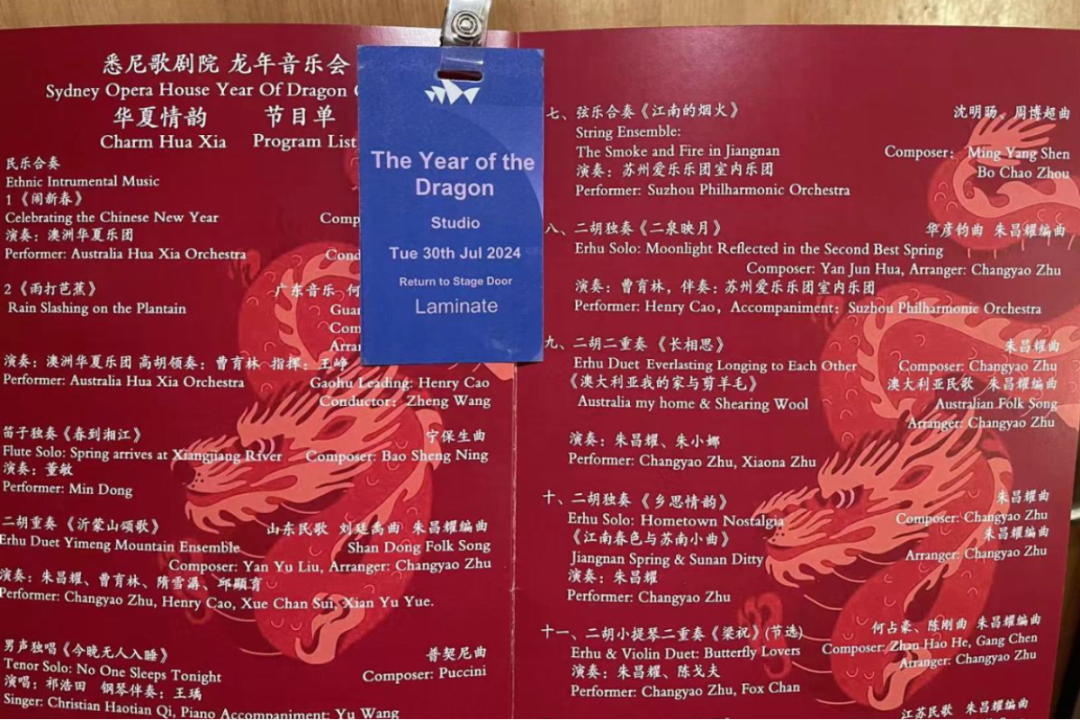 悉尼歌剧院 龙年音乐会
Sydney Opera House Year Of Dragon
华夏情韵 节目单
Charm Hua Xia Program List
民乐合奏
Ethnic Intrumental Music
1《闹新春》
Celebrating the Chinese New Year
演奏：澳洲华夏乐团
Performer: Australia Hua Xia Orchestra
2《雨打芭蕉》 广东音乐 何
Rain Slashing on the Plantain
演奏：澳洲华夏乐团 高胡领奏：曹育林 指挥：王峥
Performer: Australia Hua Xia Orchestra Gaohu Leading: Henry Cao
Conductor: Zheng Wang
笛子独奏《春到湘江》 宁保生曲
Flute Solo: Spring arrives at Xiangjiang River Composer: Bao Sheng Ning
演奏：董敏
Performer: Min Dong
二胡重奏《沂蒙山颂歌》 山东民歌 刘廷禹曲 朱昌耀编曲
Erhu Duet Yimeng Mountain Ensemble Shan Dong Folk Song
Composer: Yan Yu Liu, Arranger: Changyao Zhu
演奏：朱昌耀、曹育林、隋雪潺、邱顯育
Performer: Changyao Zhu, Henry Cao, Xue Chan Sui, Xian Yu Yue.
男声独唱《今晚无人入睡》 普契尼曲
Tenor Solo: No One Sleeps Tonight Composer: Puccini
演唱：祁浩田 钢琴伴奏：王瑀
Singer: Christian Haotian Qi, Piano Accompaniment: Yu Wang
The Year of the
Dragon
Studio
Tue 30th Jul 2024
Return to Stage Door
Laminate
七、弦乐合奏《江南的烟火》 沈明旸、周博超曲
String Ensemble:
The Smoke and Fire in Jiangnan Composer： Ming Yang Shen
演奏：苏州爱乐乐团室内乐团 Bo Chao Zhou
Performer: Suzhou Philharmonic Orchestra
八、二胡独奏《二泉映月》 华彦钧曲 朱昌耀编曲
Erhu Solo: Moonlight Reflected in the Second Best Spring
Composer: Yan Jun Hua, Arranger: Changyao Zhu
演奏：曹育林，伴奏：苏州爱乐乐团室内乐团
Performer: Henry Cao，Accompaniment：Suzhou Philharmonic Orchestra
九、二胡二重奏《长相思》 朱昌耀曲
Erhu Duet Everlasting Longing to Each Other Composer: Changyao Zhu
《澳大利亚我的家与剪羊毛》 澳大利亚民歌 朱昌耀编曲
Australia my home & Shearing Wool Australian Folk Song
Arranger: Changyao Zhu
演奏：朱昌耀、朱小娜
Performer: Changyao Zhu, Xiaona Zhu
十、二胡独奏《乡思情韵》 朱昌耀曲
Erhu Solo: Hometown Nostalgia Composer: Changyao Zhu
《江南春色与苏南小曲》 朱昌耀编曲
Jiangnan Spring & Sunan Ditty Arranger: Changyao Zhu
演奏：朱昌耀
Performer: Changyao Zhu
十一、二胡小提琴二重奏《梁祝》(节选) 何占豪、陈刚曲 朱昌耀编曲
Erhu & Violin Duet: Butterfly Lovers Composer: Zhan Hao He, Gang Chen
Arranger: Changyao Zhu
演奏：朱昌耀、陈戈夫
Performer: Changyao Zhu, Fox Chan
江苏民歌 朱昌耀编曲